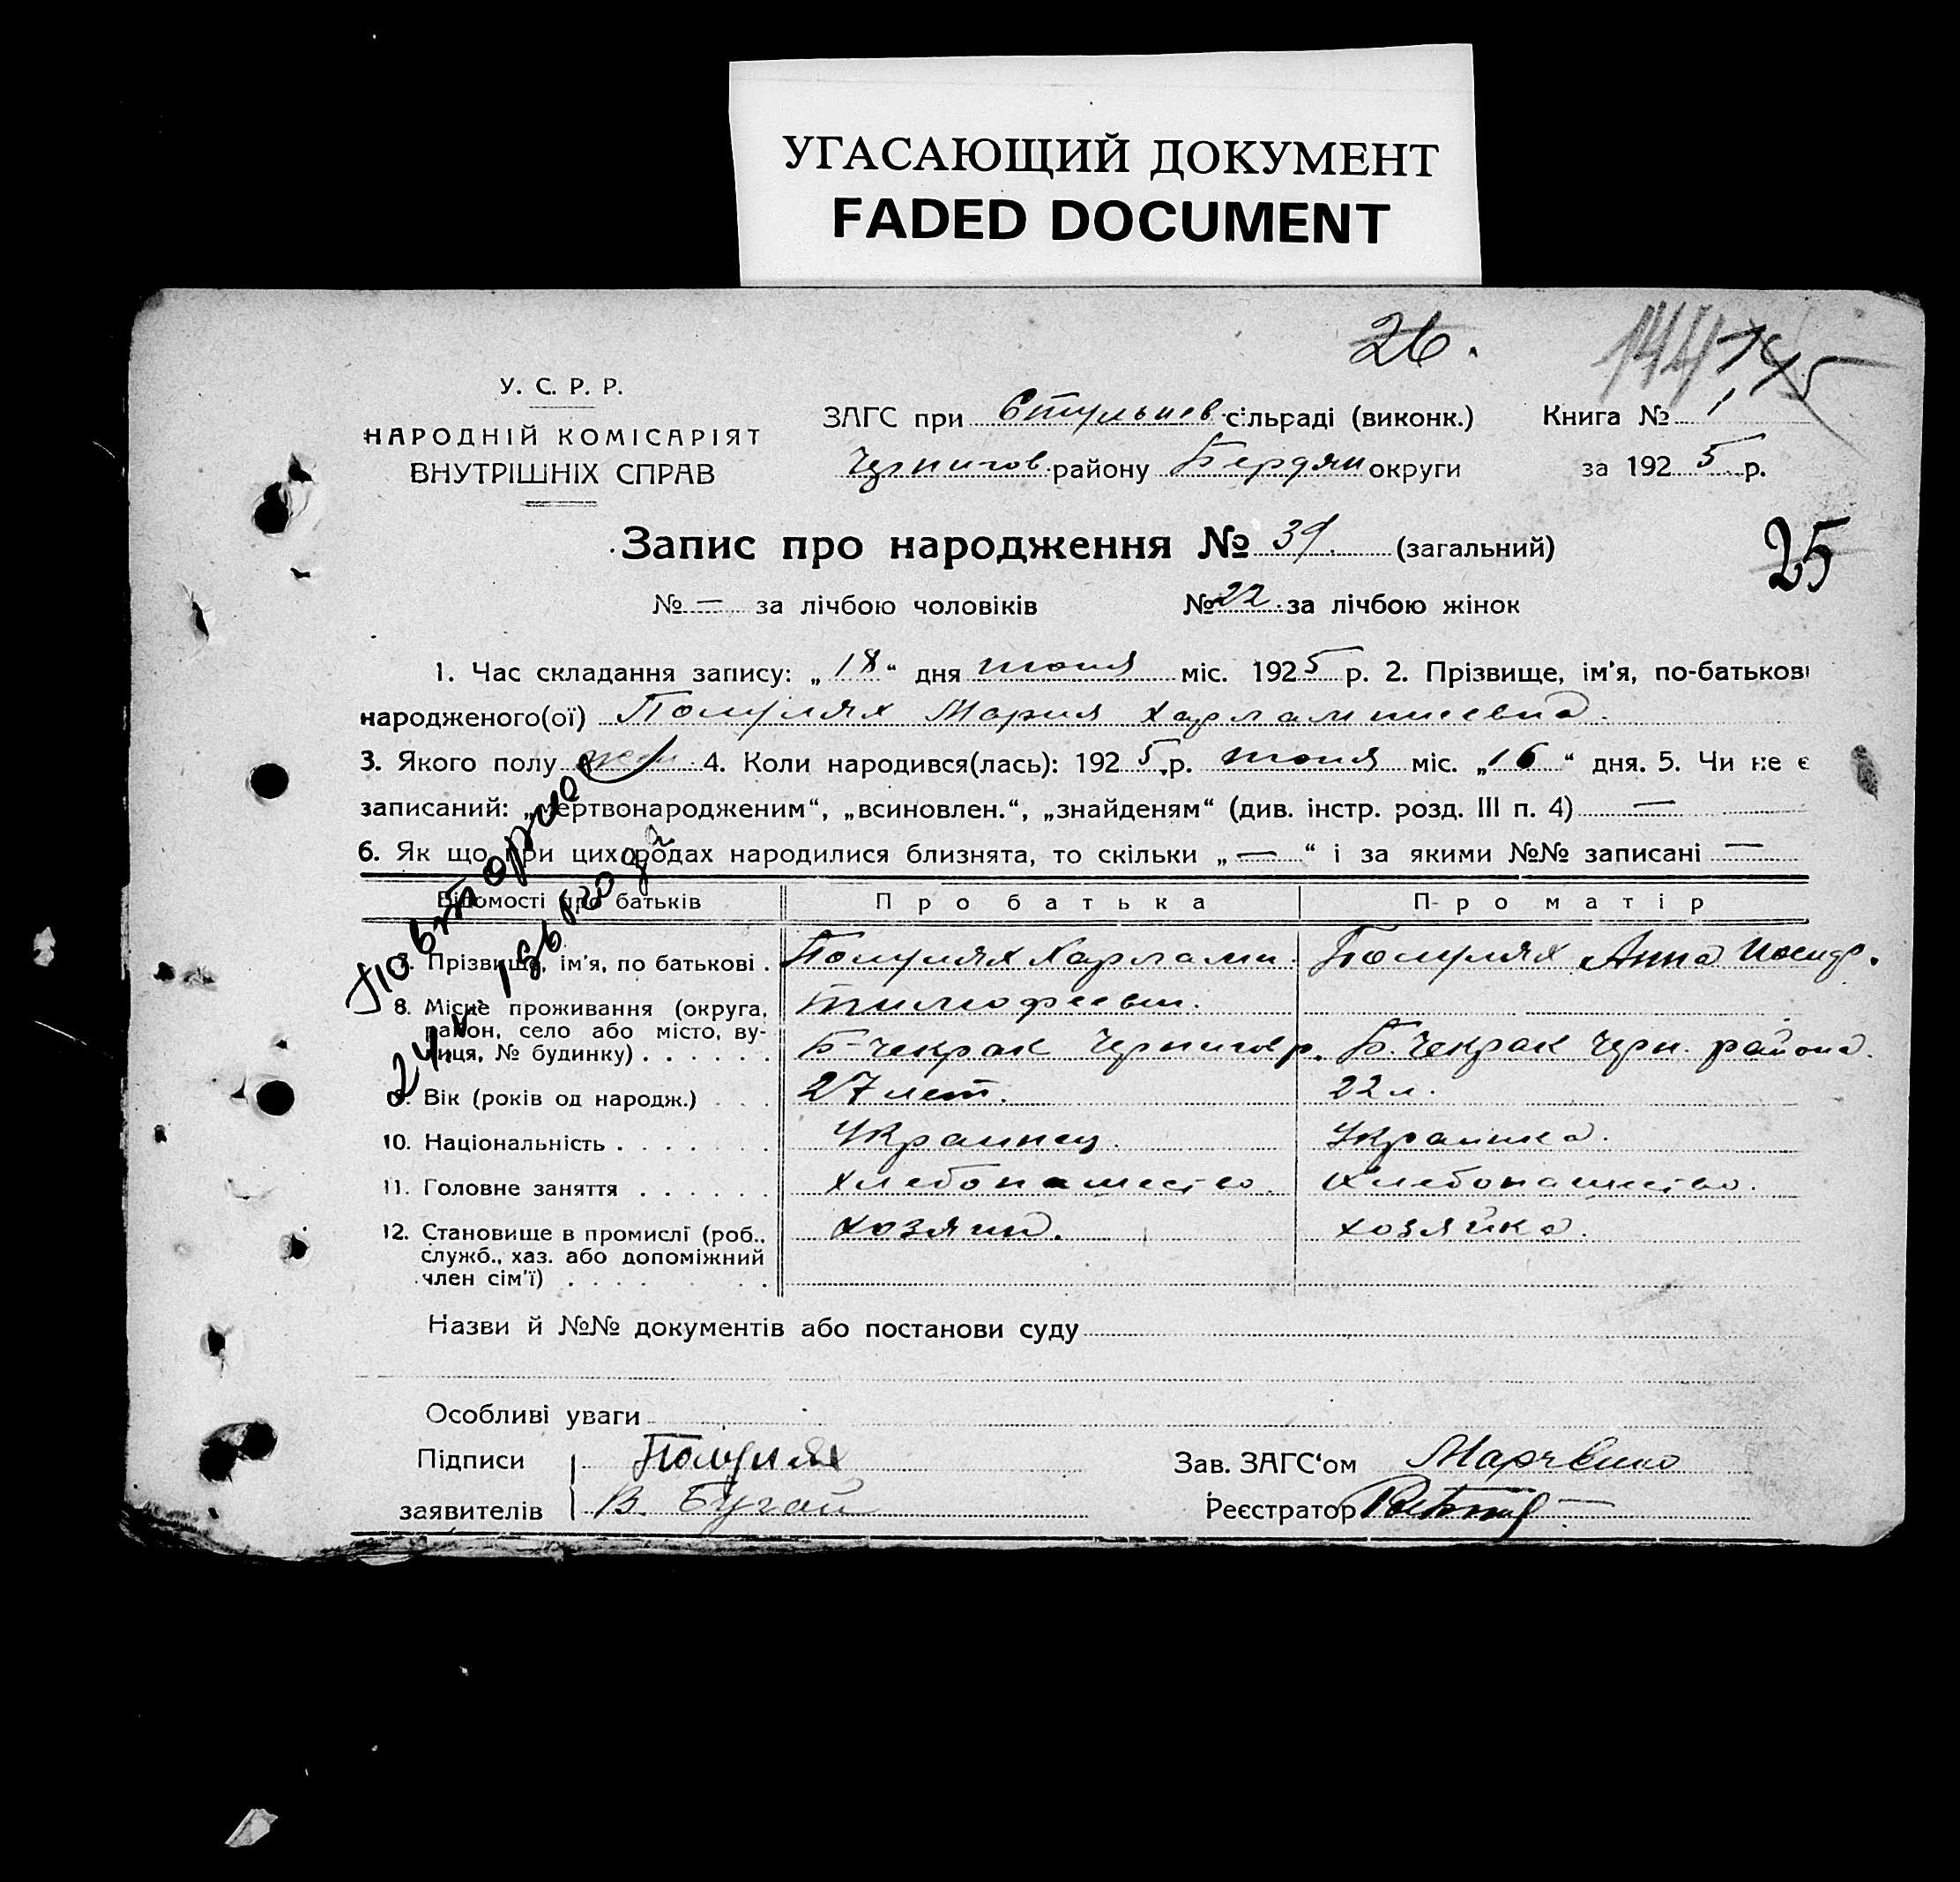 УГАСАЮЩИЙ ДОКУМЕНТ
FADED DOCUMENT
26.
144 145
У. С. Р. Р.
НАРОДНІЙ КОМІСАРІЯТ
ВНУТРІШНІХ СПРАВ
ЗАГС при Стульнев. сільраді (виконк.) Книга № 1
Чернигов. району Бердян округи за 1925 р.
Запис про народження № 39. (загальний)
25
№ — за лічбою чоловіків № 22. за лічбою жінок
1. Час складання запису: „18“ дня июня міс. 1925 р. 2. Прізвище, ім'я, по-батькові
народженого(ої) Полулях Мария Харлампиевна.
3. Якого полу жен 4. Коли народився(лась): 1925 р. июня міс. „16“ дня. 5. Чи не є
записаний: „мертвонародженим“, „всиновлен.“, „знайденям“ (див. інстр. розд. III п. 4) —
6. Як що при цих родах народилися близнята, то скільки „—“ і за якими №№ записані —
Повторное
24. V 1961 года
Відомості про батьків Про батька Про матір
7. Прізвище, ім'я, по батькові . Полулях Харлампи. Полулях Анна Иосиф.
Тимофеевич.
8. Місце проживання (округа,
район, село або місто, ву-
лиця, № будинку) . . . . . . Б-Чекрак Чернигов р. Б. Чекрак Черн. района.
9. Вік (років од народж.) . . . 27 лет. 22 л.
10. Національність . . . . . . . Украинец. Украинка.
11. Головне заняття . . . . . . хлебопашество. хлебопашество.
12. Становище в промислі (роб., хозяин. хозяйка.
служб., хаз. або допоміжний
член сім'ї) . . . . . . . .
Назви й №№ документів або постанови суду
Особливі уваги
Підписи Полулях Зав. ЗАГС'ом
заявителів В. Бугай Реєстратор